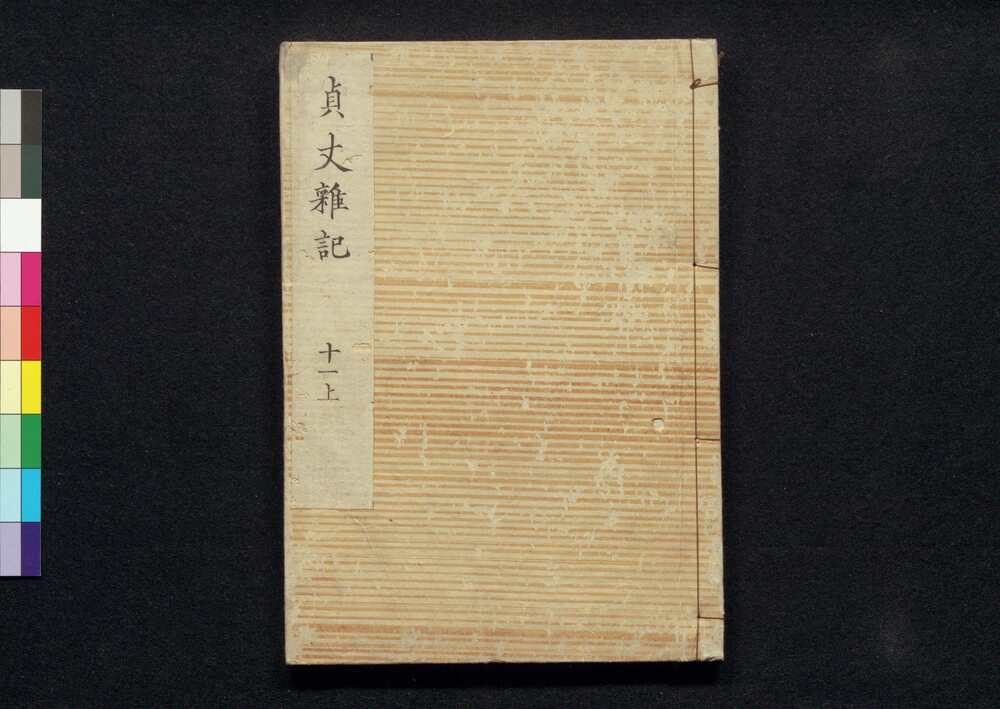 貞丈雜記
十一上